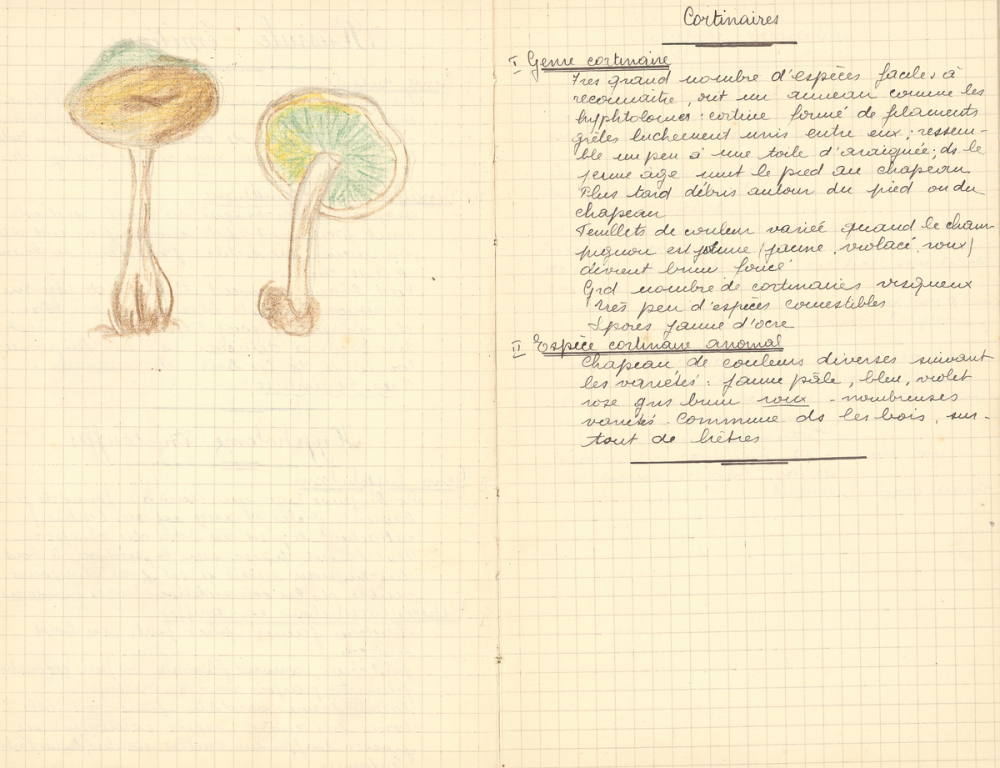 Cortinaires
I Genre cortinaire
Très grand nombre d'espèces faciles à
reconnaitre, ont un anneau comme les
hyphtolomes : cortine formé de filaments
grêles lachement unis entre eux ; ressem-
ble un peu à une toile d'araignée ; ds le
jeune age unit le pied au chapeau
Plus tard débris autour du pied ou du
chapeau
Feuillets de couleur variée quand le cham-
pignon est jeune (jaune, violacé, roux)
devient brun foncé
Grd nombre de cortinaires visqueux
Très peu d'espèces comestibles
Spores jaune d'ocre
II Espèce cortinaire anomal
Chapeau de couleurs diverses suivant
les variétés : jaune pâle, bleu, violet
rose gris brun roux - nombreuses
variétés. Commune ds les bois, sur-
tout de hêtres